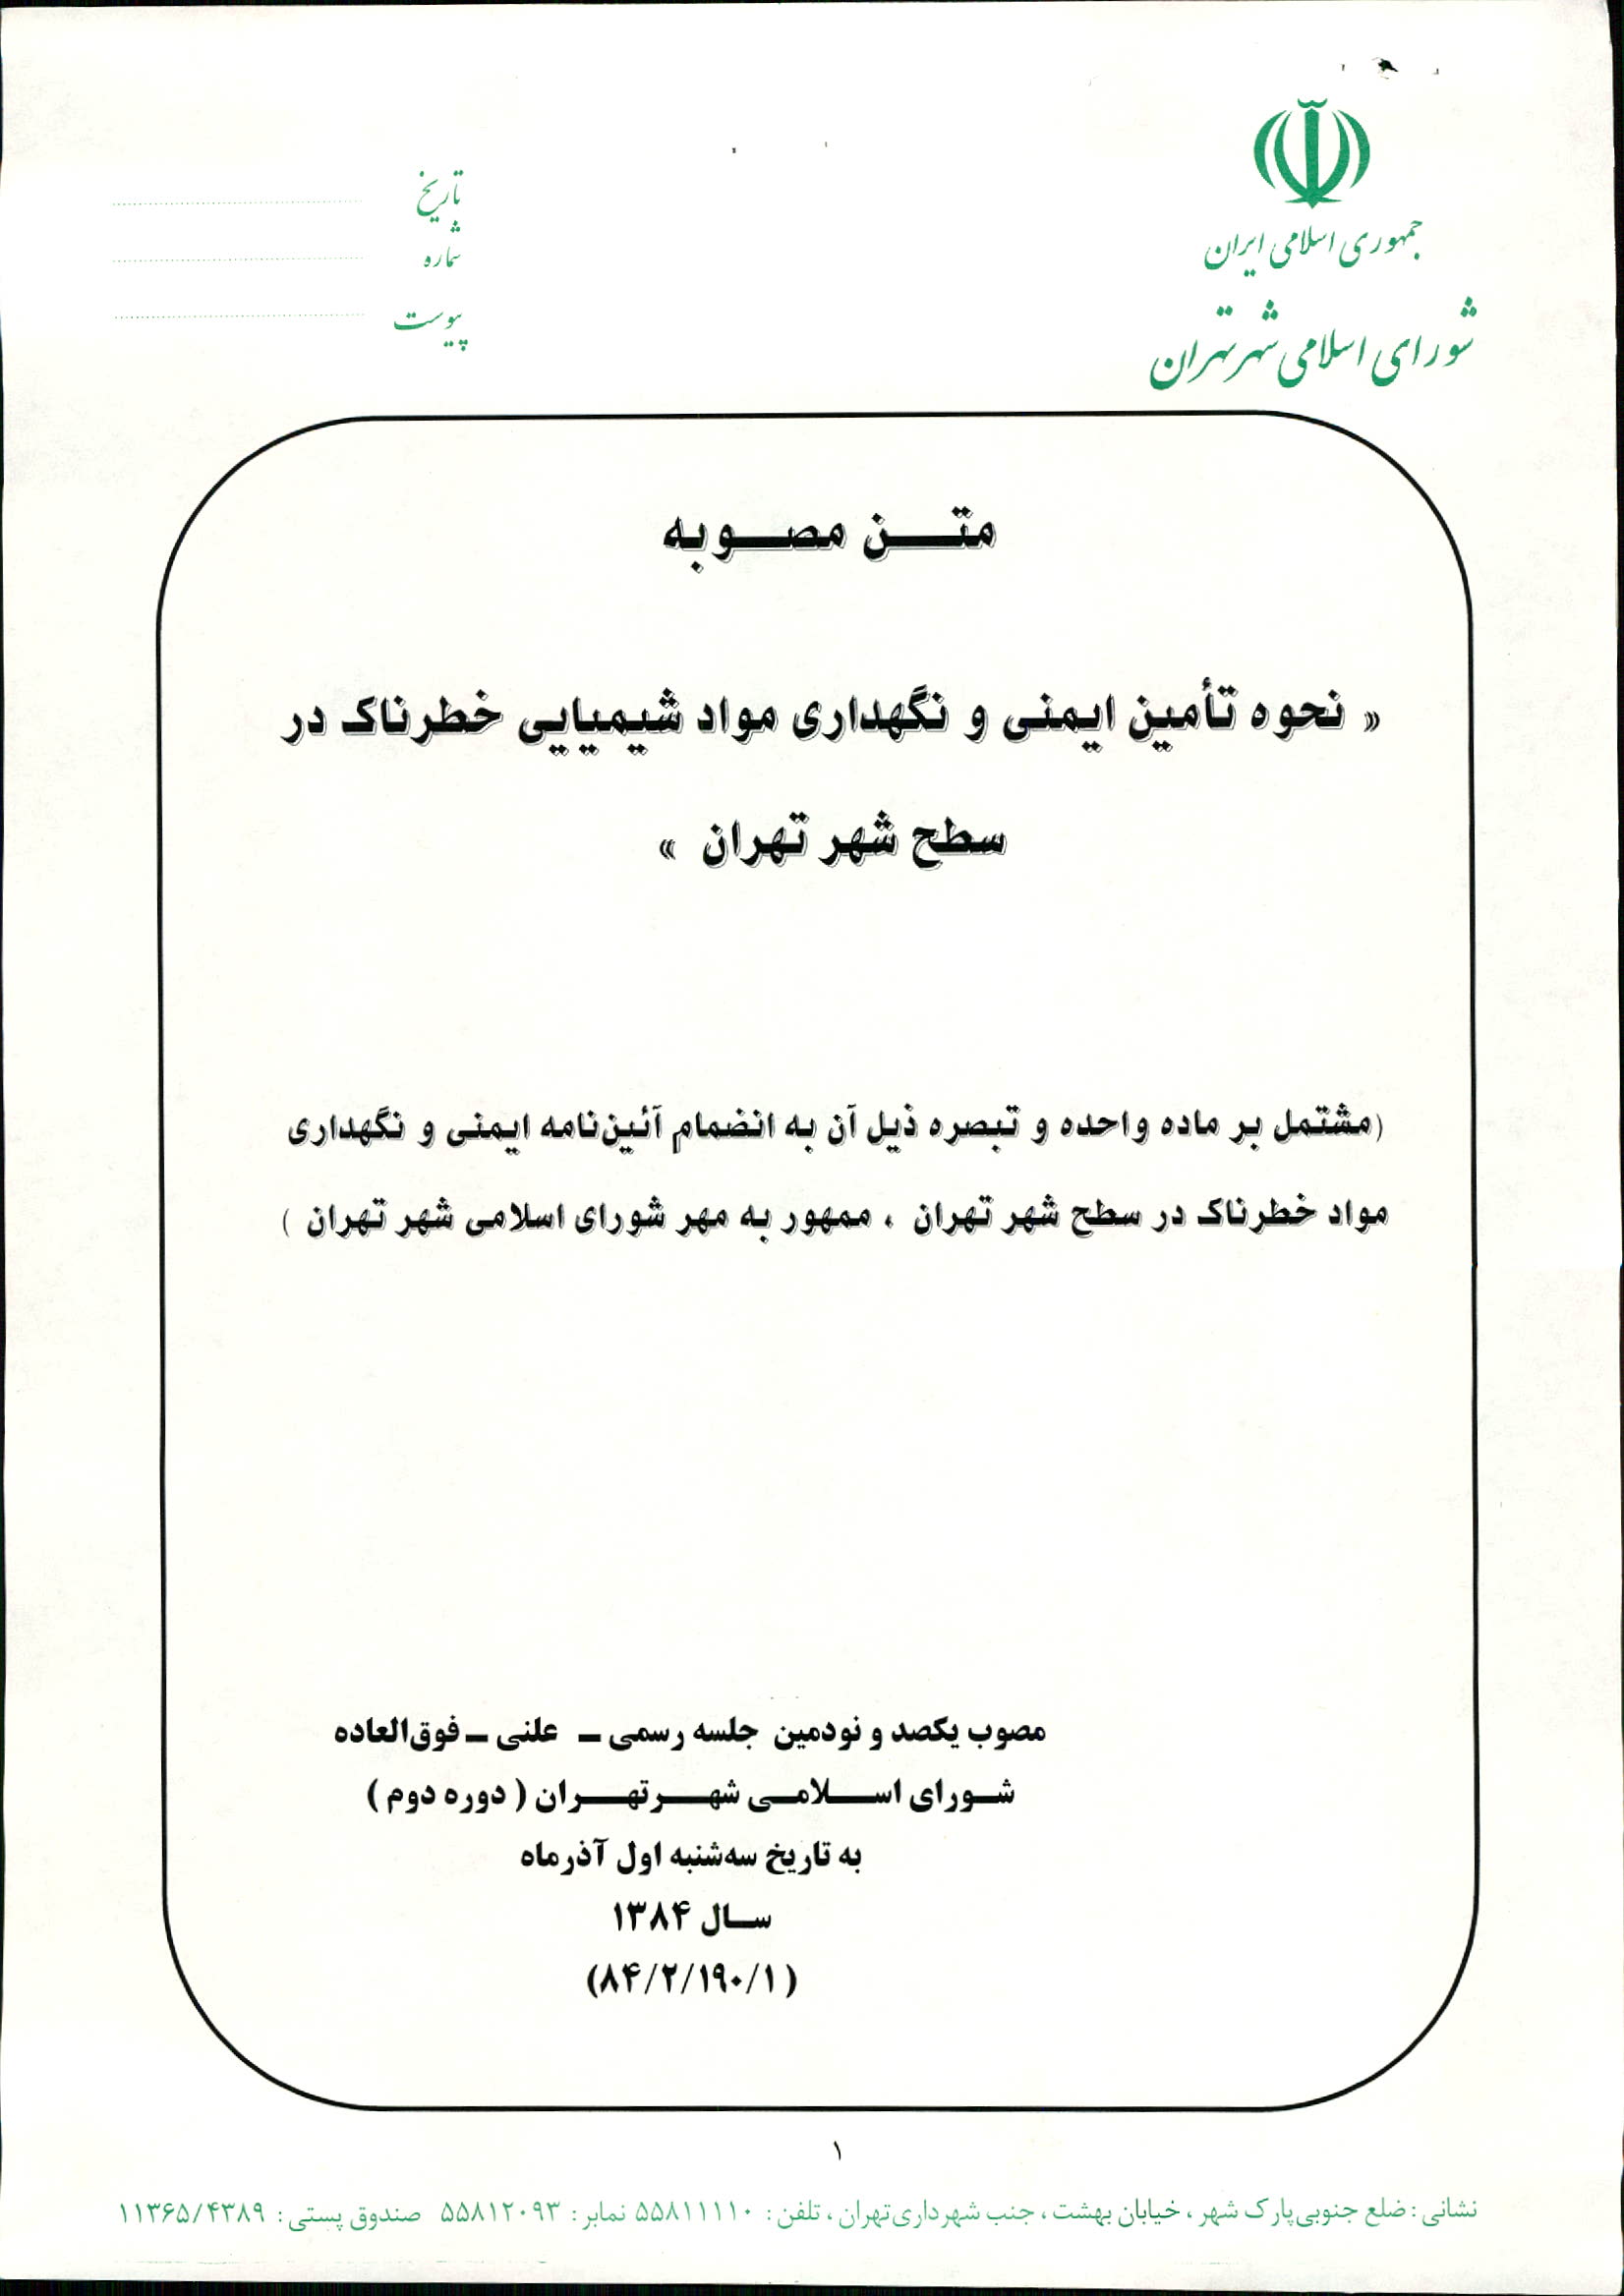 جمهوری اسلامی ایران
شورای اسلامی شهر تهران
تاریخ
شماره
پیوست
متن مصوبه
« نحوه تأمین ایمنی و نگهداری مواد شیمیایی خطرناک در
سطح شهر تهران »
(مشتمل بر ماده واحده و تبصره ذیل آن به انضمام آئین‌نامه ایمنی و نگهداری
مواد خطرناک در سطح شهر تهران ، ممهور به مهر شورای اسلامی شهر تهران )
مصوب یکصد و نودمین جلسه رسمی – علنی – فوق‌العاده
شورای اسلامی شهرتهران ( دوره دوم )
به تاریخ سه‌شنبه اول آذرماه
سال ۱۳۸۴
(۸۴/۲/۱۹۰/۱ )
۱
نشانی : ضلع جنوبی‌پارک شهر ، خیابان بهشت ، جنب شهرداری‌تهران ، تلفن : ۵۵۸۱۱۱۱۰ نمابر : ۵۵۸۱۲۰۹۳ صندوق پستی : ۱۱۳۶۵/۴۳۸۹